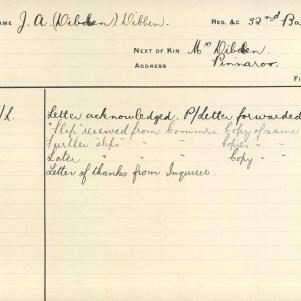 NAME J. A. (Dibden) Dibben. REG. &C 52nd Ba
NEXT OF KIN Mrs Dibden.
ADDRESS Pinnaroo.
FI
/L. Letter acknowledged. P/Letter forwarded
"Flip" received from Commrs. Copy of same
Further slips " " Copies " "
Later " " " Copy " "
Letter of thanks from Inquirer.